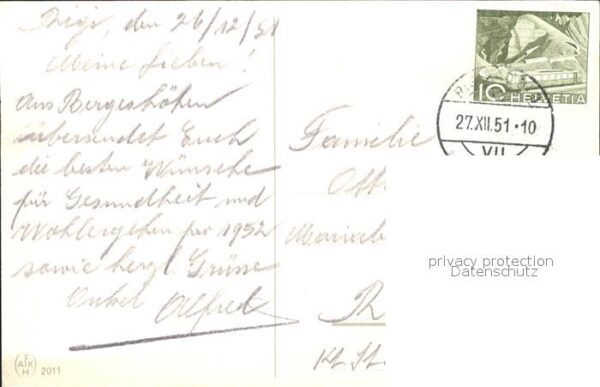 Rigi, den 26/12/51
Meine Lieben!
Aus Bergeshöhen
übersendet Euch
die besten Wünsche
für Gesundheit und
Wohlergehen pro 1952
sowie herzl. Grüsse
Onkel Alfred
10 HELVETIA
27.XII.51·10
VII
Familie
privacy protection
Datenschutz
Kt. St.
AFKH 2011